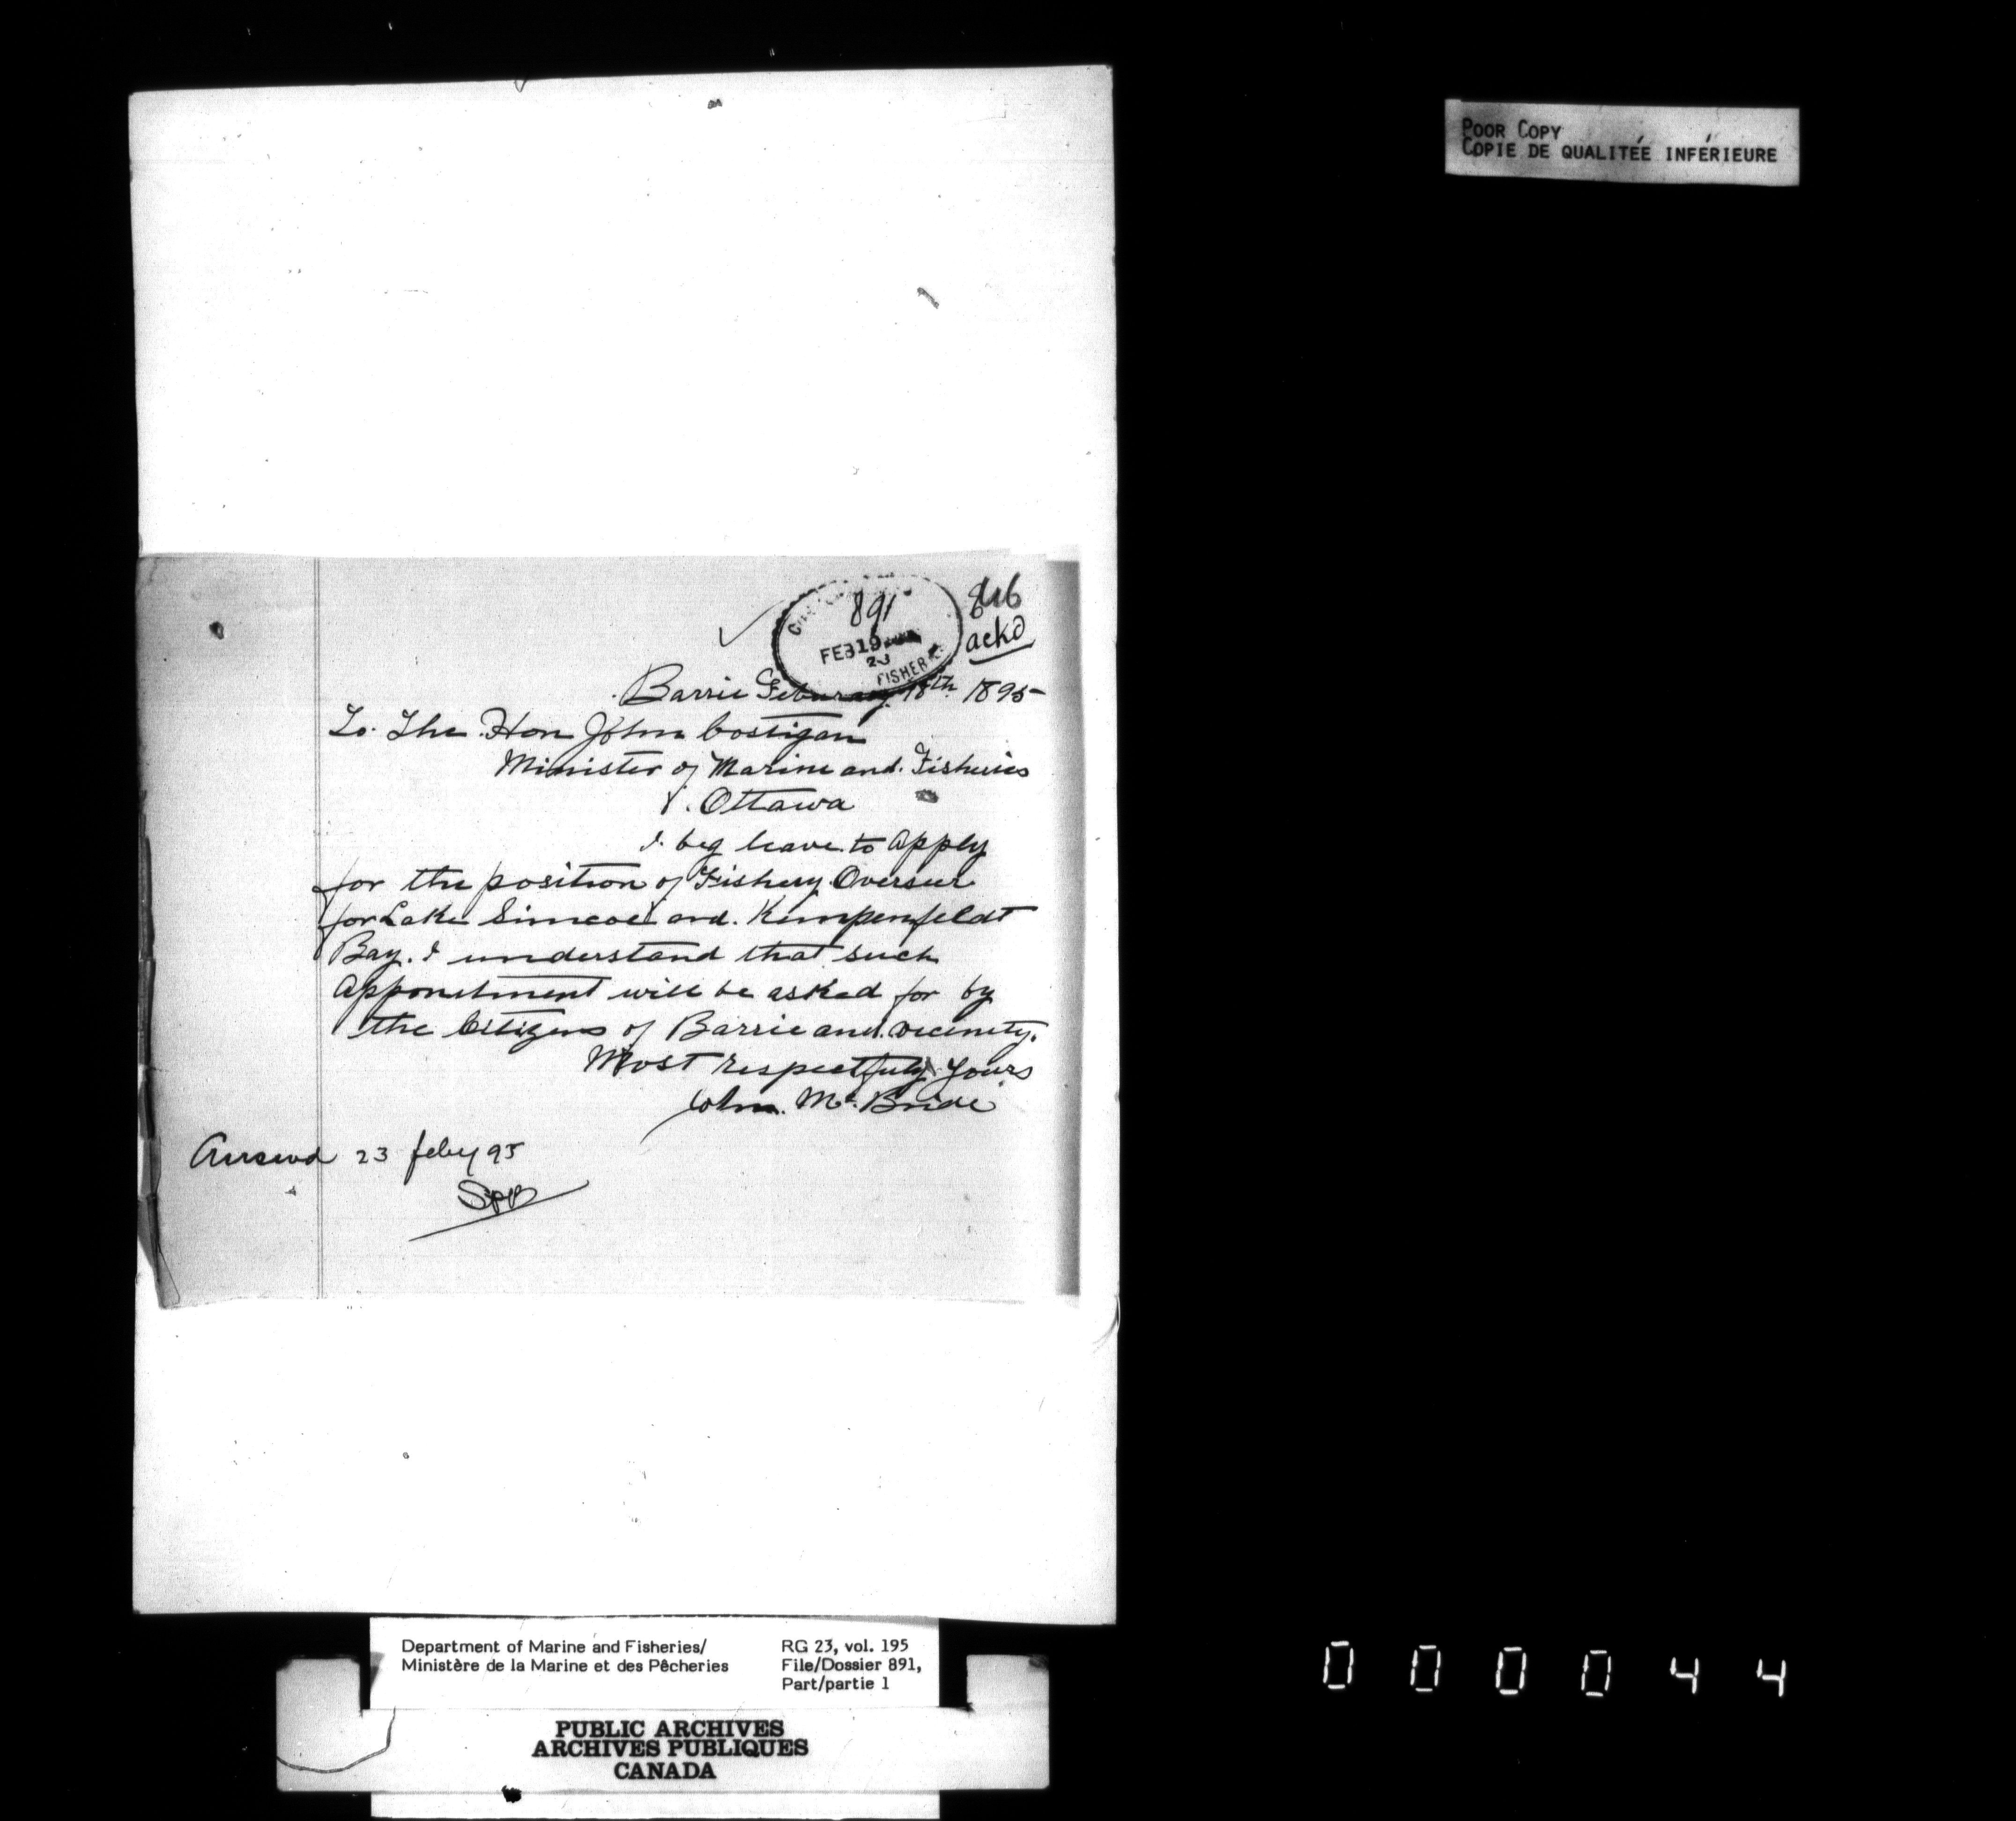 POOR COPY
COPIE DE QUALITÉE INFÉRIEURE
891
FEB 19
FISHERIES
ackd
Barrie Feburary 18th 1895
To. The Hon John Costigan
Minister of Marine and Fisheries
Ottawa
I beg leave to apply
for the position of Fishery Overseer
for Lake Simcoe and Kempenfeldt
Bay. I understand that such
Appointment will be asked for by
the Citizens of Barrie and vicinety.
Most respectfuly Yours
John McBride
Answd 23 feby 95
Department of Marine and Fisheries/
Ministère de la Marine et des Pêcheries
RG 23, vol. 195
File/Dossier 891,
Part/partie 1
PUBLIC ARCHIVES
ARCHIVES PUBLIQUES
CANADA
000044